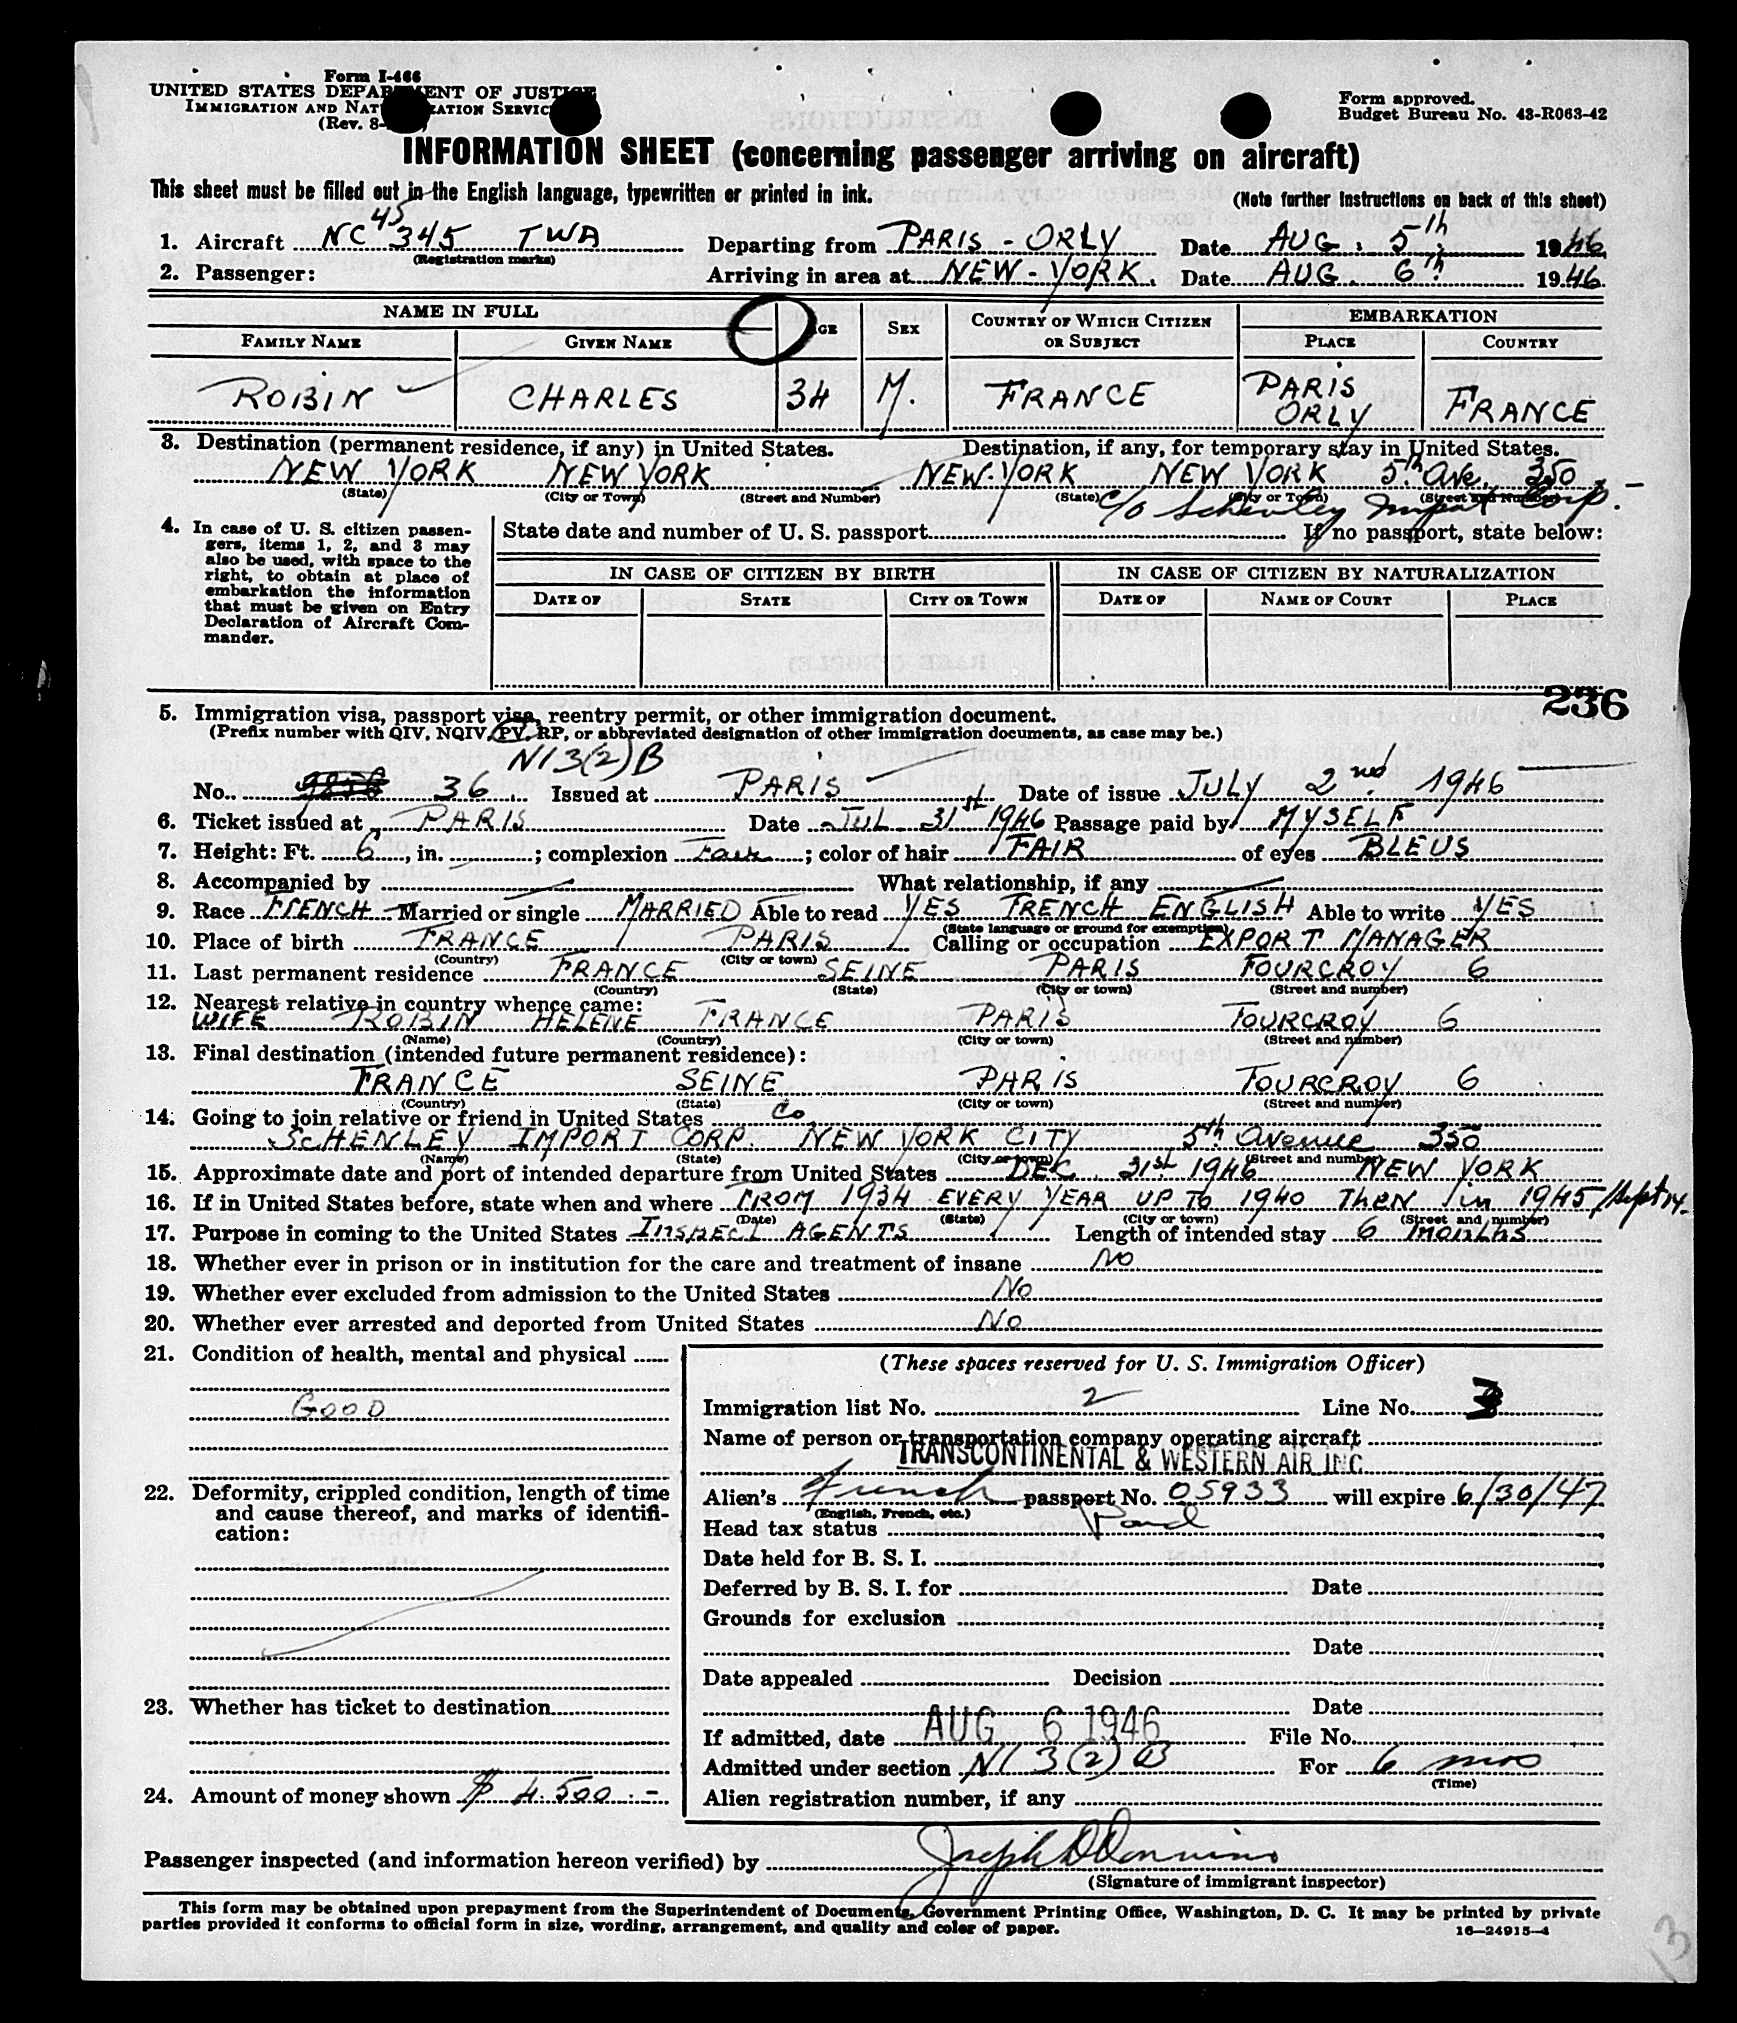 Form I-466
UNITED STATES DEPARTMENT OF JUSTICE
IMMIGRATION AND NATURALIZATION SERVICE
(Rev. 8-
Form approved.
Budget Bureau No. 43-R063-42
INFORMATION SHEET (concerning passenger arriving on aircraft)
This sheet must be filled out in the English language, typewritten or printed in ink.
(Note further instructions on back of this sheet)
1. Aircraft NC 45 345 TWA Departing from PARIS - ORLY Date AUG. 5th 1946
(Registration marks)
2. Passenger: Arriving in area at NEW-YORK. Date AUG. 6th 1946.
NAME IN FULL AGE SEX COUNTRY OF WHICH CITIZEN OR SUBJECT EMBARKATION
FAMILY NAME GIVEN NAME PLACE COUNTRY
ROBIN CHARLES 34 M. FRANCE PARIS ORLY FRANCE
3. Destination (permanent residence, if any) in United States. Destination, if any, for temporary stay in United States.
NEW YORK NEW YORK NEW-YORK NEW YORK 5th Ave. 350
(State) (City or Town) (Street and Number) (State) (City or Town) (Street and Number)
c/o Schenley Import Corp. -
4. In case of U. S. citizen passengers, items 1, 2, and 3 may also be used, with space to the right, to obtain at place of embarkation the information that must be given on Entry Declaration of Aircraft Commander.
State date and number of U. S. passport If no passport, state below:
IN CASE OF CITIZEN BY BIRTH IN CASE OF CITIZEN BY NATURALIZATION
DATE OF STATE CITY OR TOWN DATE OF NAME OF COURT PLACE
236
5. Immigration visa, passport visa, reentry permit, or other immigration document.
(Prefix number with QIV, NQIV, PV, RP, or abbreviated designation of other immigration documents, as case may be.)
NI 3(2)B
No. 36 Issued at PARIS Date of issue JULY 2nd. 1946
6. Ticket issued at PARIS Date JUL 31st 1946 Passage paid by MYSELF
7. Height: Ft. 6, in. ; complexion Fair ; color of hair FAIR of eyes BLEUS
8. Accompanied by What relationship, if any
9. Race FRENCH Married or single MARRIED Able to read YES FRENCH ENGLISH Able to write YES
(State language or ground for exemption)
10. Place of birth FRANCE PARIS Calling or occupation EXPORT MANAGER
(Country) (City or town)
11. Last permanent residence FRANCE SEINE PARIS FOURCROY 6
(Country) (State) (City or town) (Street and number)
12. Nearest relative in country whence came:
WIFE ROBIN HELENE FRANCE PARIS FOURCROY 6
(Name) (Country) (City or town) (Street and number)
13. Final destination (intended future permanent residence):
FRANCE SEINE PARIS FOURCROY 6
(Country) (State) (City or town) (Street and number)
14. Going to join relative or friend in United States Co
SCHENLEY IMPORT CORP. NEW YORK CITY 5th Avenue 350
(Name) (State) (City or town) (Street and number)
15. Approximate date and port of intended departure from United States DEC. 31st 1946 NEW YORK
16. If in United States before, state when and where FROM 1934 EVERY YEAR UP TO 1940 THEN in 1945/Sept 14.
(Date) (State) (City or town) (Street and number)
17. Purpose in coming to the United States INSPECT AGENTS Length of intended stay 6 months
18. Whether ever in prison or in institution for the care and treatment of insane NO
19. Whether ever excluded from admission to the United States No
20. Whether ever arrested and deported from United States No
21. Condition of health, mental and physical
GOOD
22. Deformity, crippled condition, length of time and cause thereof, and marks of identification:
23. Whether has ticket to destination
24. Amount of money shown $ 4.500.-
(These spaces reserved for U. S. Immigration Officer)
Immigration list No. 2 Line No. 3
Name of person or transportation company operating aircraft
TRANSCONTINENTAL & WESTERN AIR INC
Alien's French passport No. 05933 will expire 6/30/47
(English, French, etc.)
Head tax status Paid
Date held for B. S. I.
Deferred by B. S. I. for Date
Grounds for exclusion
Date
Date appealed Decision
Date
If admitted, date AUG 6 1946 File No.
Admitted under section NI 3(2)B For 6 mos
(Time)
Alien registration number, if any
Passenger inspected (and information hereon verified) by
(Signature of immigrant inspector)
This form may be obtained upon prepayment from the Superintendent of Documents, Government Printing Office, Washington, D. C. It may be printed by private
parties provided it conforms to official form in size, wording, arrangement, and quality and color of paper.
16-24915-4
13